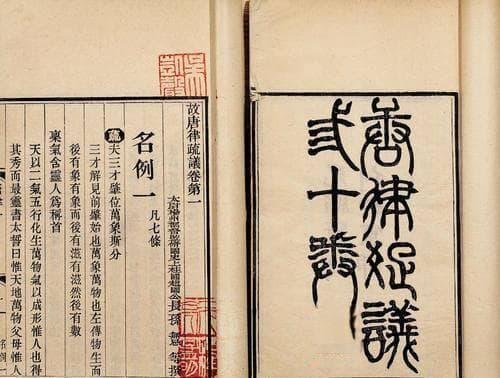 唐律疏議
弎十卷
故唐律疏議卷第一
太尉揚州都督監修國史上柱國趙國公長孫無忌等撰
名例一 凡七條
疏夫三才肇位萬象斯分
三才解見前肇始也萬象萬物也左傳物生而
後有象有象而後有滋滋然後有數
稟氣含靈人爲稱首
天以二氣五行化生萬物氣以成形惟人也得
其秀而最靈書太誓曰惟天地萬物父母惟人